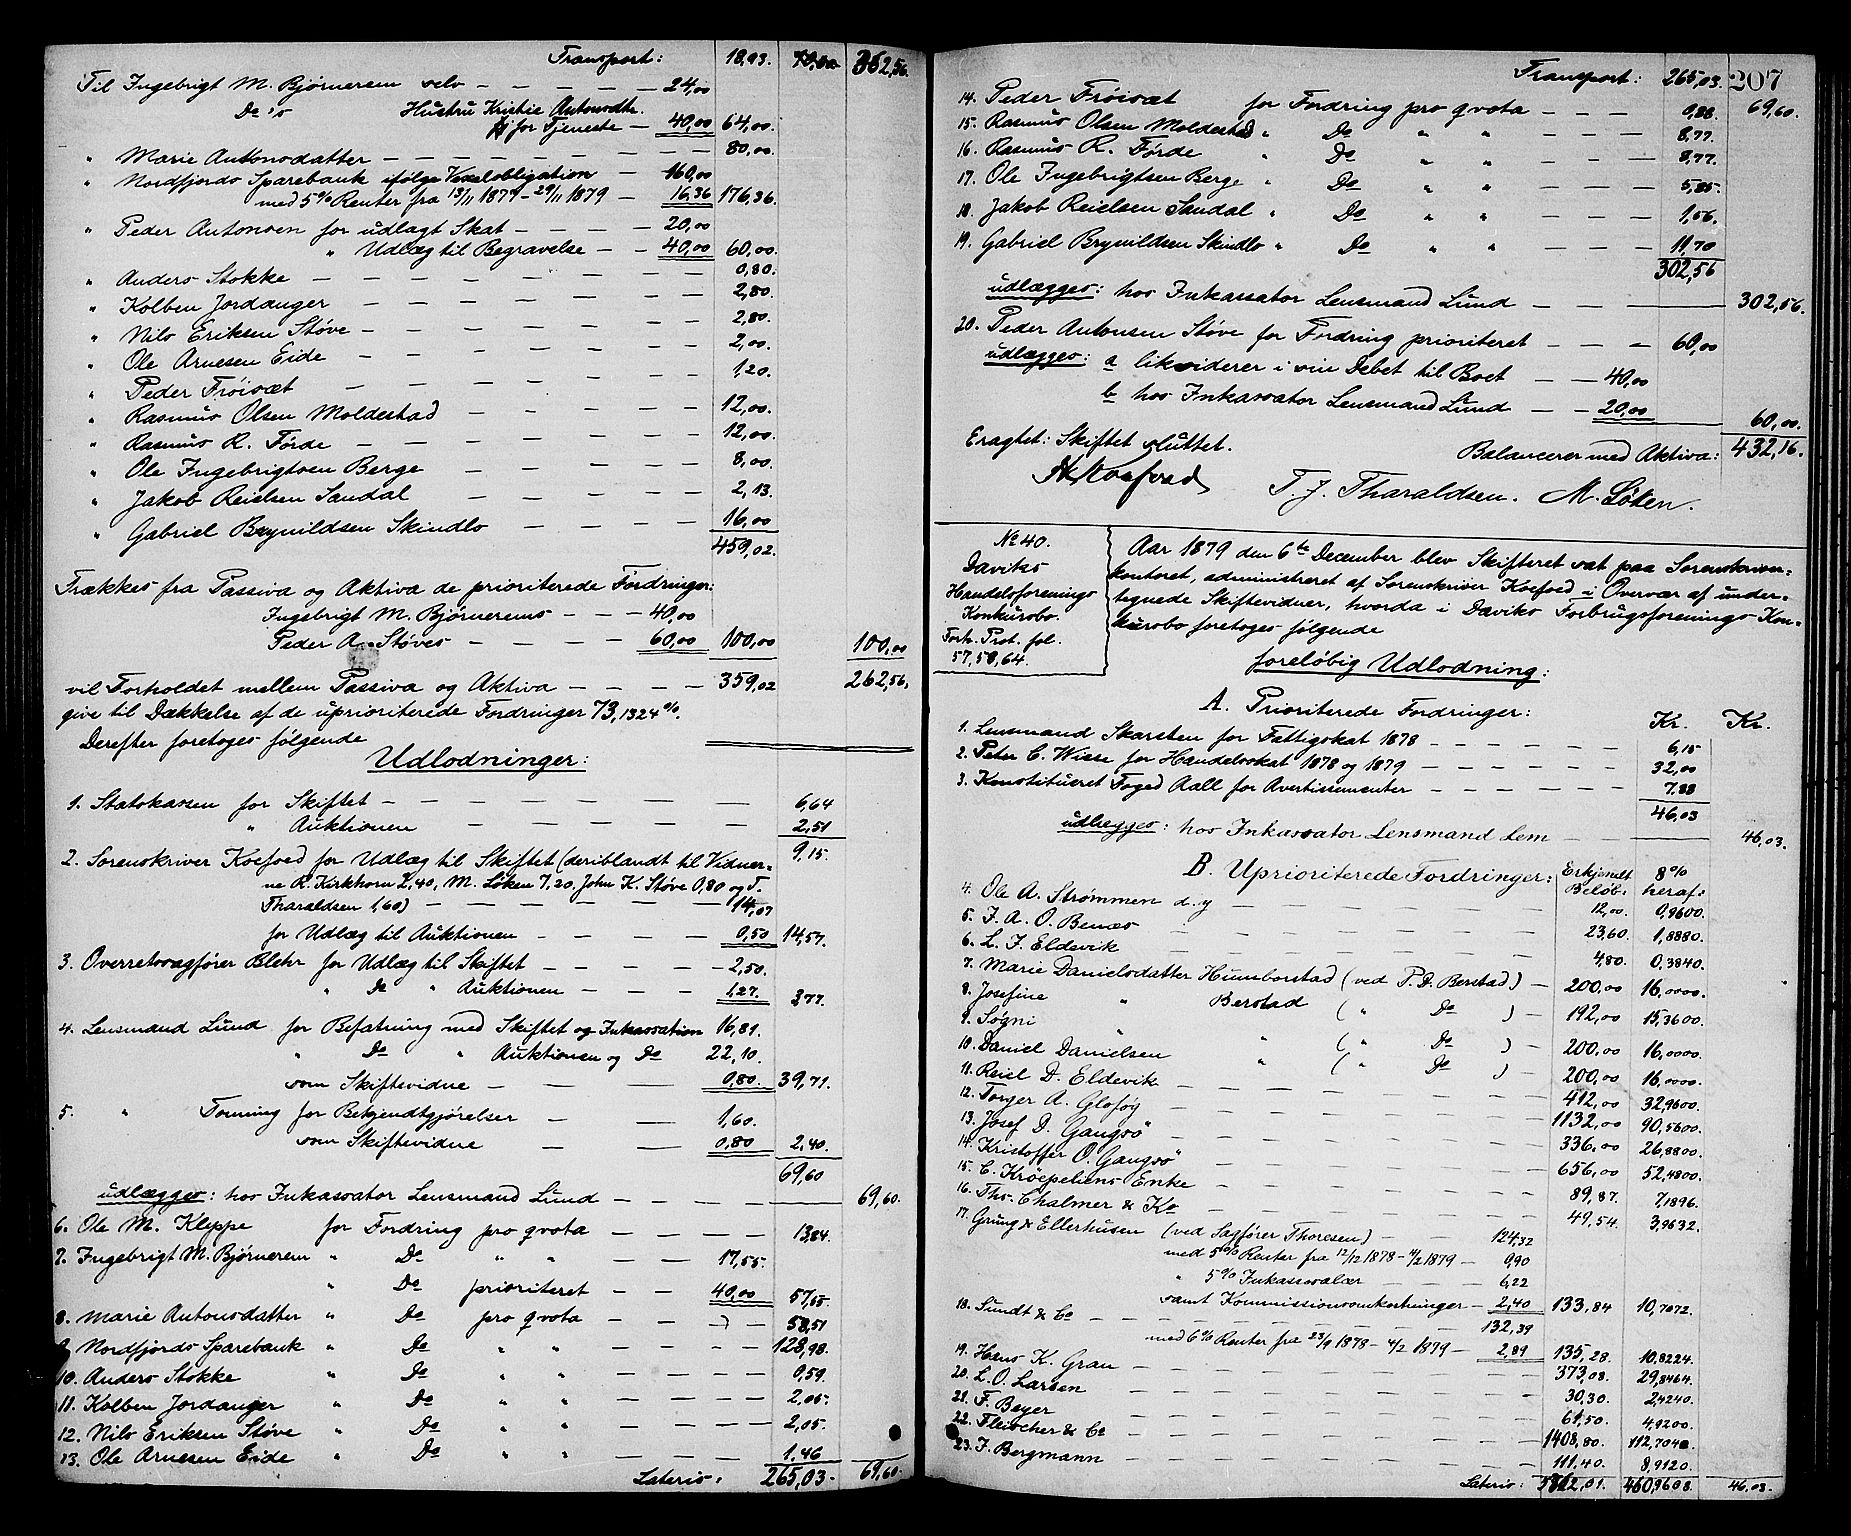 Transport: 18,93. 70,00 362,56.
Til Ingebrigt M. Bjørnerem selv — — — — 24,00
Do's Hustru Kristie Antonsdtr.
for Tjeneste — 40,00 64,00.
" Marie Antonsdatter — — — — — — — 80,00.
" Nordfjords Sparebank ifølge Vexelobligation — 160,00
med 5% Renter fra 13/11 1879 - 29/11 1879 — 16,36 176,36.
" Peder Antonsen for udlagt Skat — — — — 20,00
" Udlæg til Begravelse — — 40,00 60,00.
" Anders Stokke — — — — — — — 0,80.
" Kolben Jordanger — — — — — — 2,80.
" Nils Eriksen Støve — — — — — — 2,80.
" Ole Arnesen Eide — — — — — — 2,00.
" Peder Frøisæt — — — — — — 1,20.
" Rasmus Olsen Moldestad — — — — — 12,00.
" Rasmus R. Förde — — — — — — 12,00.
" Ole Ingebrigtsen Berge — — — — — 8,00.
" Jakob Reielsen Sandal — — — — — 2,13.
" Gabriel Brynildsen Skindlo — — — — 16,00
459,02.
Trækkes fra Passiva og Aktiva de prioriterede Fordringer:
Ingebrigt M. Bjørnerems — — — 40,00
Peder A. Støves — — — 60,00 100,00 100,00
vil Forholdet mellem Passiva og Aktiva — — — — 359,02 262,56.
give til Dækkelse af de uprioriterede Fordringer 73,1324%.
Derefter foretoges følgende
Udlodninger:
1. Statskassen for Skiftet — — — — — — 6,64
" Auktionen — — — — — 2,51
9,15.
2. Sorenskriver Koefoed for Udlæg til Skiftet (deriblandt til Vidner-
ne R. Kirkhorn 2,40, M. Løken 7,20, John K. Støve 0,80 og T.
Tharaldsen 1,60) — — — — — — 14,07
for Udlæg til Auktionen — — — — 0,50 14,57.
3. Overretssagfører Blehr for Udlæg til Skiftet — — — — 2,50.
" Do " Auktionen — — — 1,27. 3,77.
4. Lensmand Lund for Befatning med Skiftet og Inkassation 16,81.
" Do " Auktionen og Do 22,10.
som Skiftevidne — — — 0,80. 39,71.
5. " Tonning for Bekjendtgjørelser — — 1,60.
som Skiftevidne — — 0,80 2,40.
69,60
udlægges: hos Inkassator Lensmand Lund — — — — 69,60.
6. Ole M. Kleppe for Fordring pro qvota — — — — 13,84.
7. Ingebrigt M. Bjørnerem " Do " " — — 17,55.
" Do prioriteret — — 40,00 57,55.
8. Marie Antonsdatter " Do pro qvota — — — — 58,51
9. Nordfjords Sparebank " Do " " — — — — 128,98.
10. Anders Stokke " Do " " — — — — 0,59.
11. Kolben Jordanger " Do " " — — — — 2,05.
12. Nils Eriksen Støve " Do " " — — — — 2,05.
13. Ole Arnesen Eide " Do " " — — — — 1,46
Lateris: 265,03. 69,60.
207
Transport: 265,03. 69,60.
14. Peder Frøisæt for Fordring pro qvota — — — 0,88.
15. Rasmus Olsen Moldestad " Do " " — — — 8,77.
16. Rasmus R. Förde " Do " " — — — 8,77.
17. Ole Ingebrigtsen Berge " Do " " — — — 5,85.
18. Jakob Reielsen Sandal " Do " " — — — 1,56.
19. Gabriel Brynildsen Skindlo " Do " " — — — 11,70
302,56
udlægges: hos Inkassator Lensmand Lund — — — 302,56.
20. Peder Antonsen Støve for Fordring prioriteret — — — 60,00
udlægges: a likviderer i sin Debet til Boet — — 40,00
b hos Inkassator Lensmand Lund — — 20,00
60,00.
Eragtet: Skiftet sluttet. Balancerer med Aktiva: 432,16.
Koefoed T. J. Tharaldsen. M. Løken.
No 40.
Daviks
Handelsforenings
Konkursbo.
Forh. Prot. fol.
57,58,64.
Aar 1879 den 6te December blev Skifteret sat paa Sorenskriver-
kontoret, administreret af Sorenskriver Koefoed i Overvær af under-
tegnede Skiftevidner, hvorda i Daviks Forbrugsforenings Kon-
kursbo foretoges følgende
foreløbig Udlodning:
A. Prioriterede Fordringer: Kr. Kr.
1. Lensmand Skarsten for Fattigskat 1878 — — — — — 6,15
2. Peter C. Wisse for Handelsskat 1878 og 1879 — — — — — 32,00
3. Konstitueret Foged Aall for Avertissementer — — — — — 7,88
46,03
udlægges: hos Inkassator Lensmand Lem — — 46,03.
B. Uprioriterede Fordringer: Erkjendt Beløb: 8% heraf:
4. Ole A. Strømmen d.y — — — — — 12,00. 0,9600.
5. J. A. O. Benæs — — — — — 23,60. 1,8880.
6. L. J. Eldevik — — — — — 4,80. 0,3840.
7. Marie Danielsdatter Humborstad (ved P. D. Berstad) — 200,00 16,0000.
8. Josefine " Berstad ( " Do ) — 192,00 15,3600.
9. Søgni " " ( " Do ) — 200,00 16,0000.
10. Daniel Danielsen " ( " Do ) — 200,00 16,0000.
11. Reisl D. Eldevik — — — — — 412,00 32,9600.
12. Torger A. Gloføg — — — — — 1132,00 90,5600.
13. Josef D. Gangsö — — — — — 336,00 26,8800.
14. Kristoffer O. Gangsö — — — — — 656,00 52,4800.
15. C. Kröepeliens Enke — — — — — 89,87. 7,1896.
16. Ths. Chalmer & Ko — — — — — 49,54. 3,9632.
17. Grung & Ellerhusen (ved Sagfører Thoresen) — — 124,32
med 5% Renter fra 12/12 1878 - 4/2 1879 — 0,90
" 5% Inkassosalær — — — 6,22
samt Kommissionsomkostninger — 2,40 133,84 10,7072.
18. Sundt & Co — — — — — 132,39
med 6% Renter fra 23/9 1878 - 4/2 1879 — 2,89 135,28. 10,8224.
19. Hans K. Gran — — — — — 373,08. 29,8464.
20. L. O. Larsen — — — — — 30,30. 2,4240.
21. F. Beyer — — — — — 61,50. 4,9200.
22. Fleischer & Co — — — — — 1408,80. 112,7040.
23. J. Bergmann — — — — — 111,40. 8,9120.
Lateris: 460,9608. 46,03.